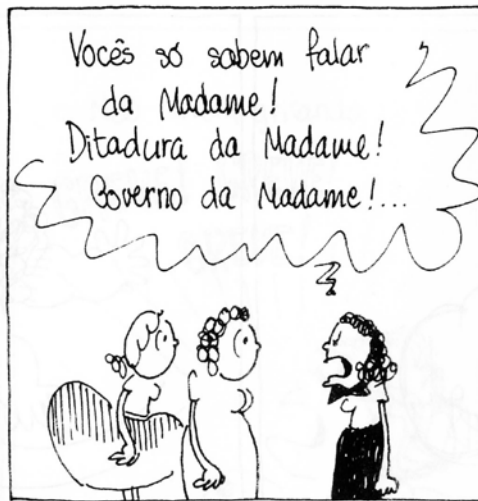 Vocês só sabem falar
da Madame!
Ditadura da Madame!
Governo da Madame!...